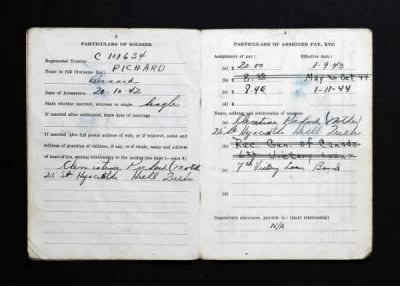 2
PARTICULARS OF SOLDIER
Regimental Number C 101634
Name in full (Surname first) PICHARD
Bernard
Date of Attestation 20-10-42
State whether married, widower or single Single
If married after enlistment, state date of marriage.
If married give full postal address of wife, or if widower, name and
address of guardian of children, if any, or if single, name and address
of next-of-kin, stating relationship to the soldier (see page 1—para 8).
Clementine Pichard (Mother)
25 St Hyacinth Hull Quebec
3
PARTICULARS OF ASSIGNED PAY, ETC
Assignment of pay: Effective date:
(a) 20.00 1-9-43
(b) 8.40 May to Oct 44
(c) 8.40 1-11-44
(d)
Name, address and relationship of assignee:
(a) Clementine Pichard (Mother)
25 St Hyacinth Hull Quebec
(b) Rec. Gen. of Canada
6th Victory Loan
(c) 7th Victory Loan Bond
(d)
Dependents' allowance, payable to: (state relationship)
N/A